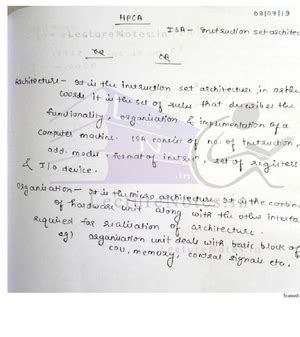 HPCA
03/07/19
ISA - Instruction set architec
CA
CR
Architecture - It is the instruction set architecture, in other
words it is the set of rules that describes the
funtionality, organisation & implementation of a
computer machine. ISA consist of no. of instruction,
add. modes, format of instrcn, set of registers
& I/o device.
Organisation - It is the micro architecture. It is the combin
of hardware unit along with the other interfa
required for realisation of architecture.
eg) organisation unit deals with basic block of
CPU, memory, control signals etc.
LectureNotes.in
Scanned